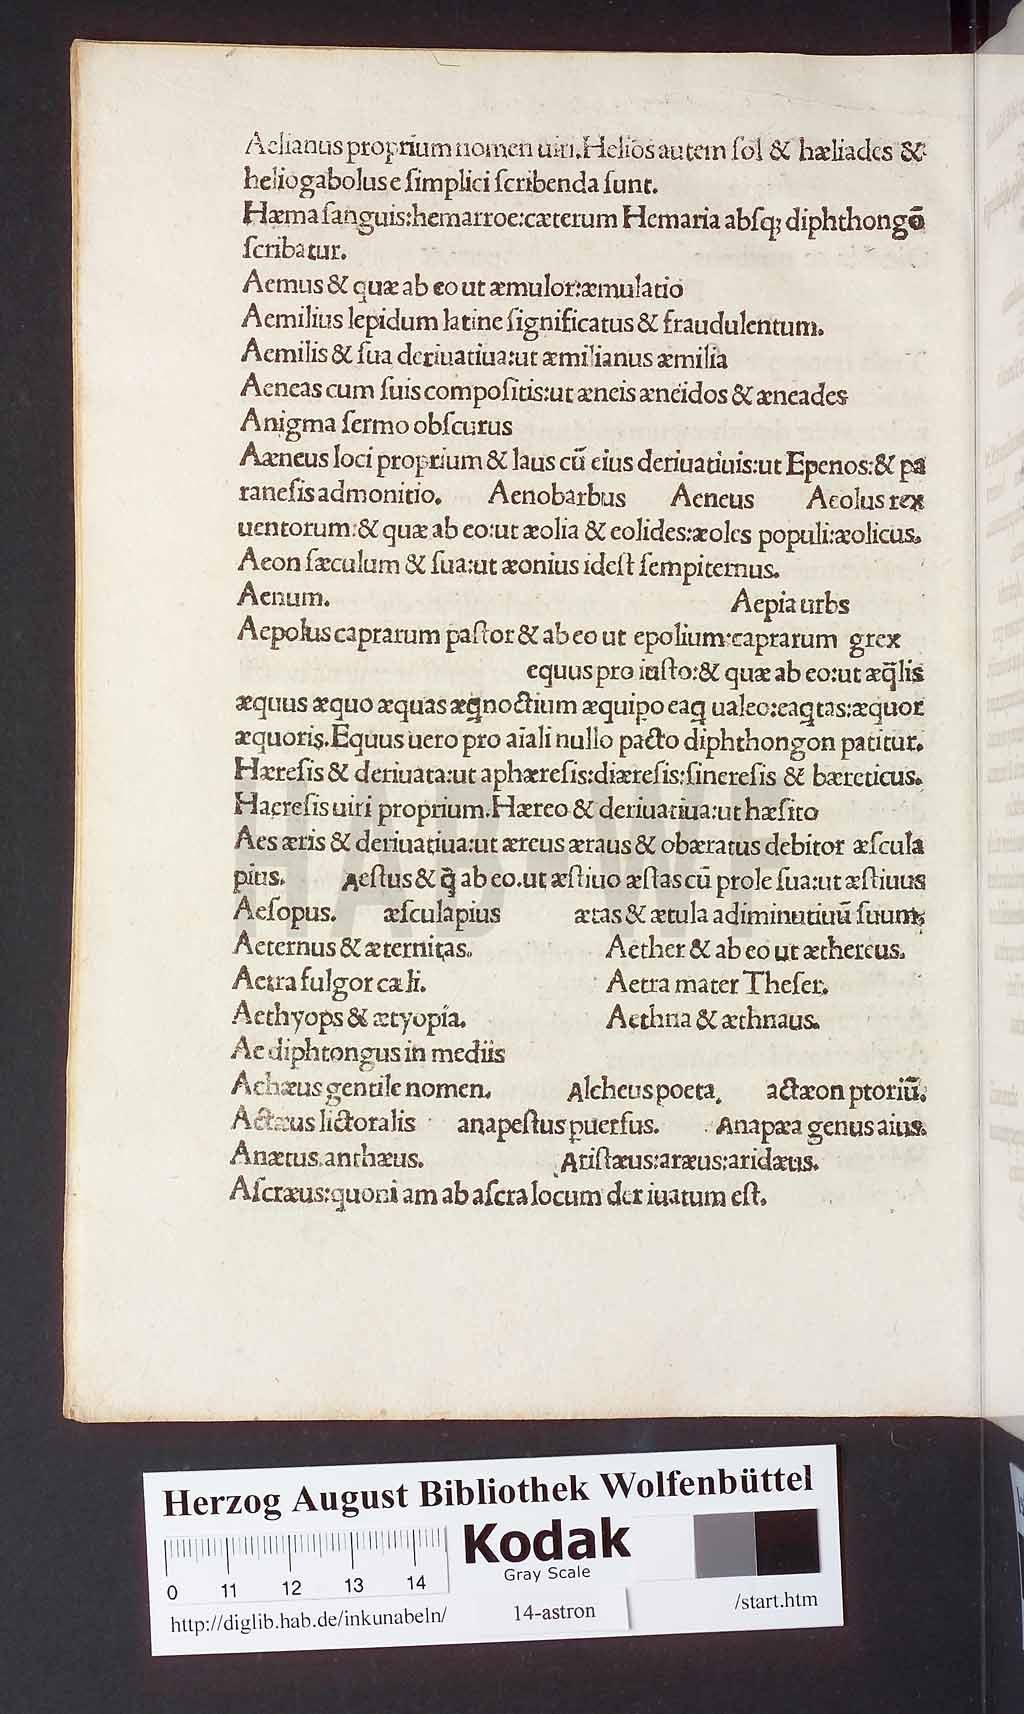 Aelianus proprium nomen uiri.Helios autem ſol & hæliades &
heliogabolus e ſimplici ſcribenda ſunt.
Hæma ſanguis:hemarroe:cæterum Hemaria abſq; diphthongō
ſcribatur.
Aemus & quæ ab eo ut æmulor:æmulatio
Aemilius lepidum latine ſignificatus & fraudulentum.
Aemilis & ſua deriuatiua:ut æmilianus æmilia
Aeneas cum ſuis compoſitis:ut æneis æneidos & æneades
Anigma ſermo obſcurus
Aæneus loci proprium & laus cū eius deriuatiuis:ut Epenos:& pa
raneſis admonitio. Aenobarbus Aeneus Aeolus rex
uentorum:& quæ ab eo:ut æolia & eolides:æoles populi:æolicus.
Aeon ſæculum & ſua:ut æonius ideſt ſempiternus.
Aenum. Aepia urbs
Aepolus caprarum paſtor & ab eo ut epolium:caprarum grex
equus pro iuſto:& quæ ab eo:ut æq̄lis
æquus æquo æquas æqnoctium æquipo eaq ualeo:eaqtas:æquor
æquoris.Equus uero pro aīali nullo pacto diphthongon patitur.
Hæreſis & deriuata:ut aphæreſis:diæreſis:ſinereſis & bæreticus.
Haereſis uiri proprium.Hæreo & deriuatiua:ut hæſito
Aes æris & deriuatiua:ut æreus æraus & obæratus debitor æſcula
pius. Aeſtus & q̄ ab eo.ut æſtiuo æſtas cū prole ſua:ut æſtiuus
Aeſopus. æſculapius ætas & ætula adiminutiuū ſuum;
Aeternus & æternitas. Aether & ab eo ut æthereus.
Aetra fulgor cæli. Aetra mater Theſer.
Aethyops & ætyopia. Aethna & æthnaus.
Ae diphtongus in mediis
Achæus gentile nomen. Alcheus poeta. actæon ptoriū.
Actæus lictoralis anapeſtus puerſus. Anapæa genus aius.
Anætus.anthæus. Ariſtæus:aræus:aridæus.
Aſcræus:quoni am ab aſcra locum der iuatum eſt.
HAB WF
Herzog August Bibliothek Wolfenbüttel
0 11 12 13 14
Kodak
Gray Scale
http://diglib.hab.de/inkunabeln/ 14-astron /start.htm